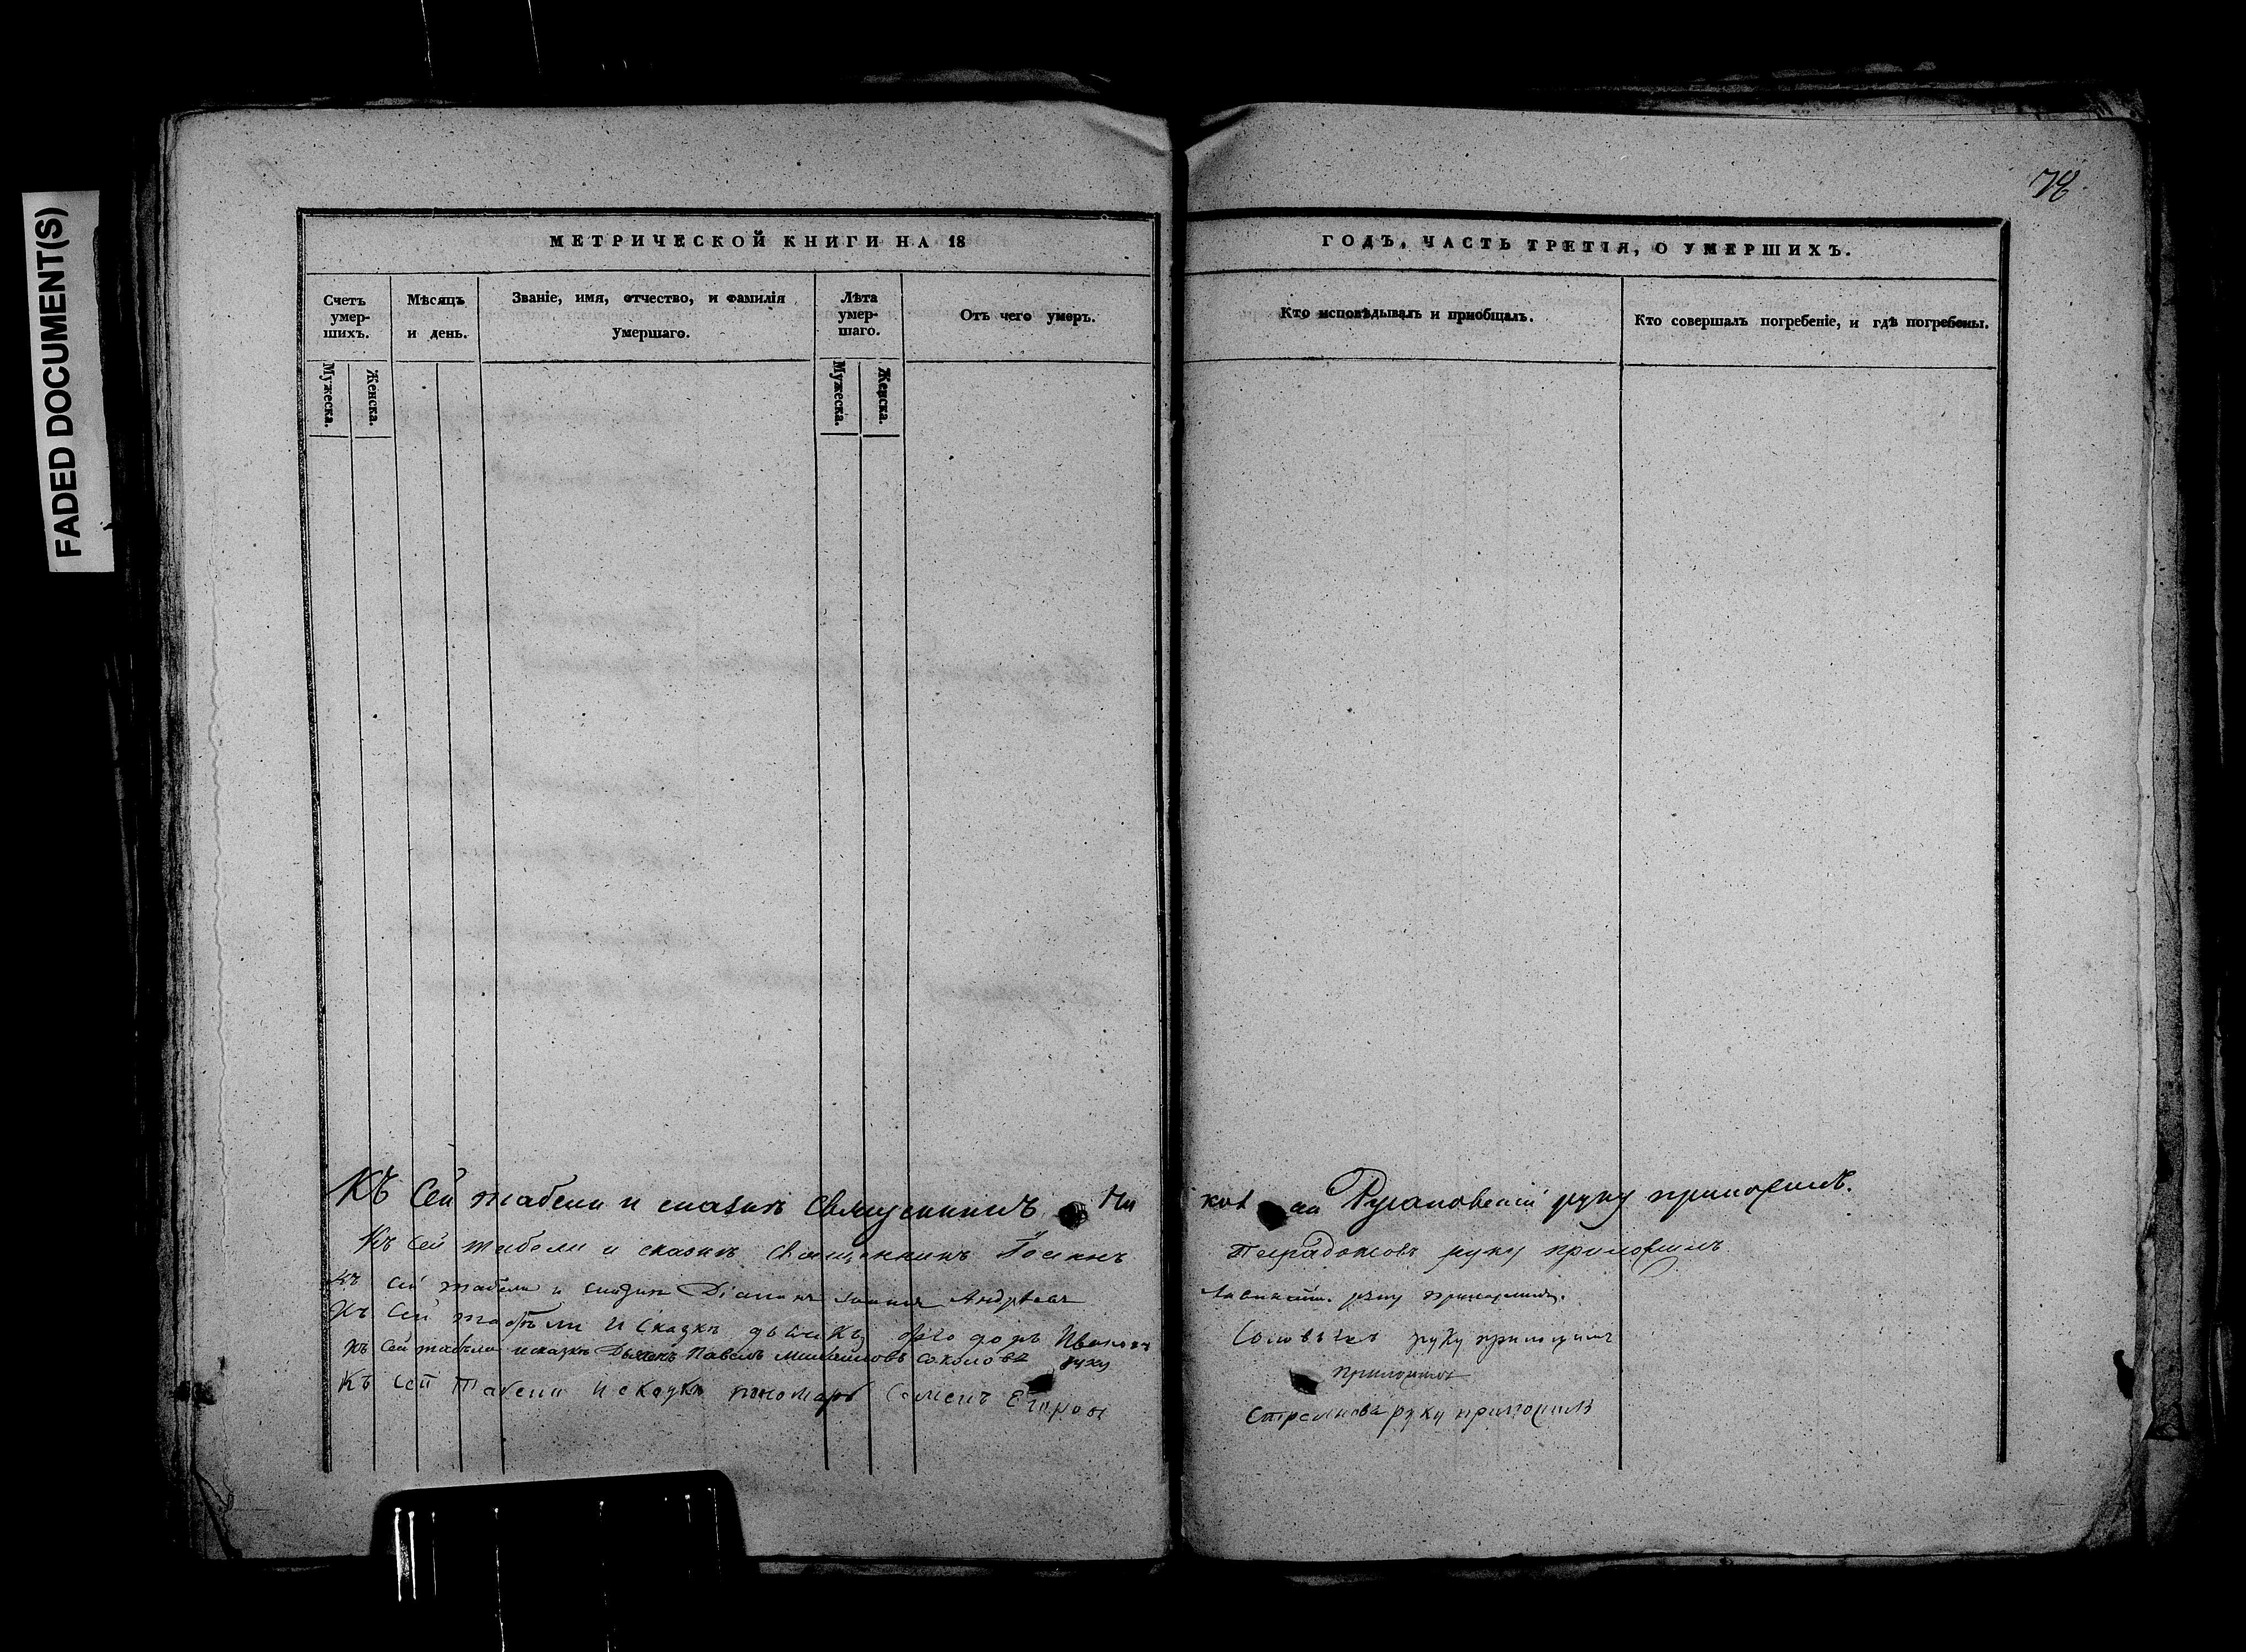 FADED DOCUMENT(S)
78.
МЕТРИЧЕСКОЙ КНИГИ НА 18
ГОДЪ, ЧАСТЬ ТРЕТІЯ, О УМЕРШИХЪ.
Счетъ умер-
шихъ.
Мѣсяцъ
и день.
Званіе, имя, отчество, и фамилія
умершаго.
Лѣта
умер-
шаго.
Отъ чего умеръ.
Кто исповѣдывалъ и пріобщалъ.
Кто совершалъ погребеніе, и гдѣ погребены.
Мужеска.
Женска.
Мужеска.
Женска.
Къ сей табели и сказкѣ священникъ Ни
кол ай руку приложилъ.
Къ сей табели и сказкѣ священникъ Іоаннъ
руку приложилъ
Къ сей табели и сказкѣ Діаконъ Іоаннъ Андреевъ
руку приложилъ.
Къ сей табели и сказкѣ дьячекъ Ивановъ
руку приложилъ
Къ сей табели и сказкѣ Дьячекъ Павелъ Михайловъ Соколовъ руку
приложилъ
Къ сей табели и сказкѣ пономарь Семенъ Егоровъ
руку приложилъ